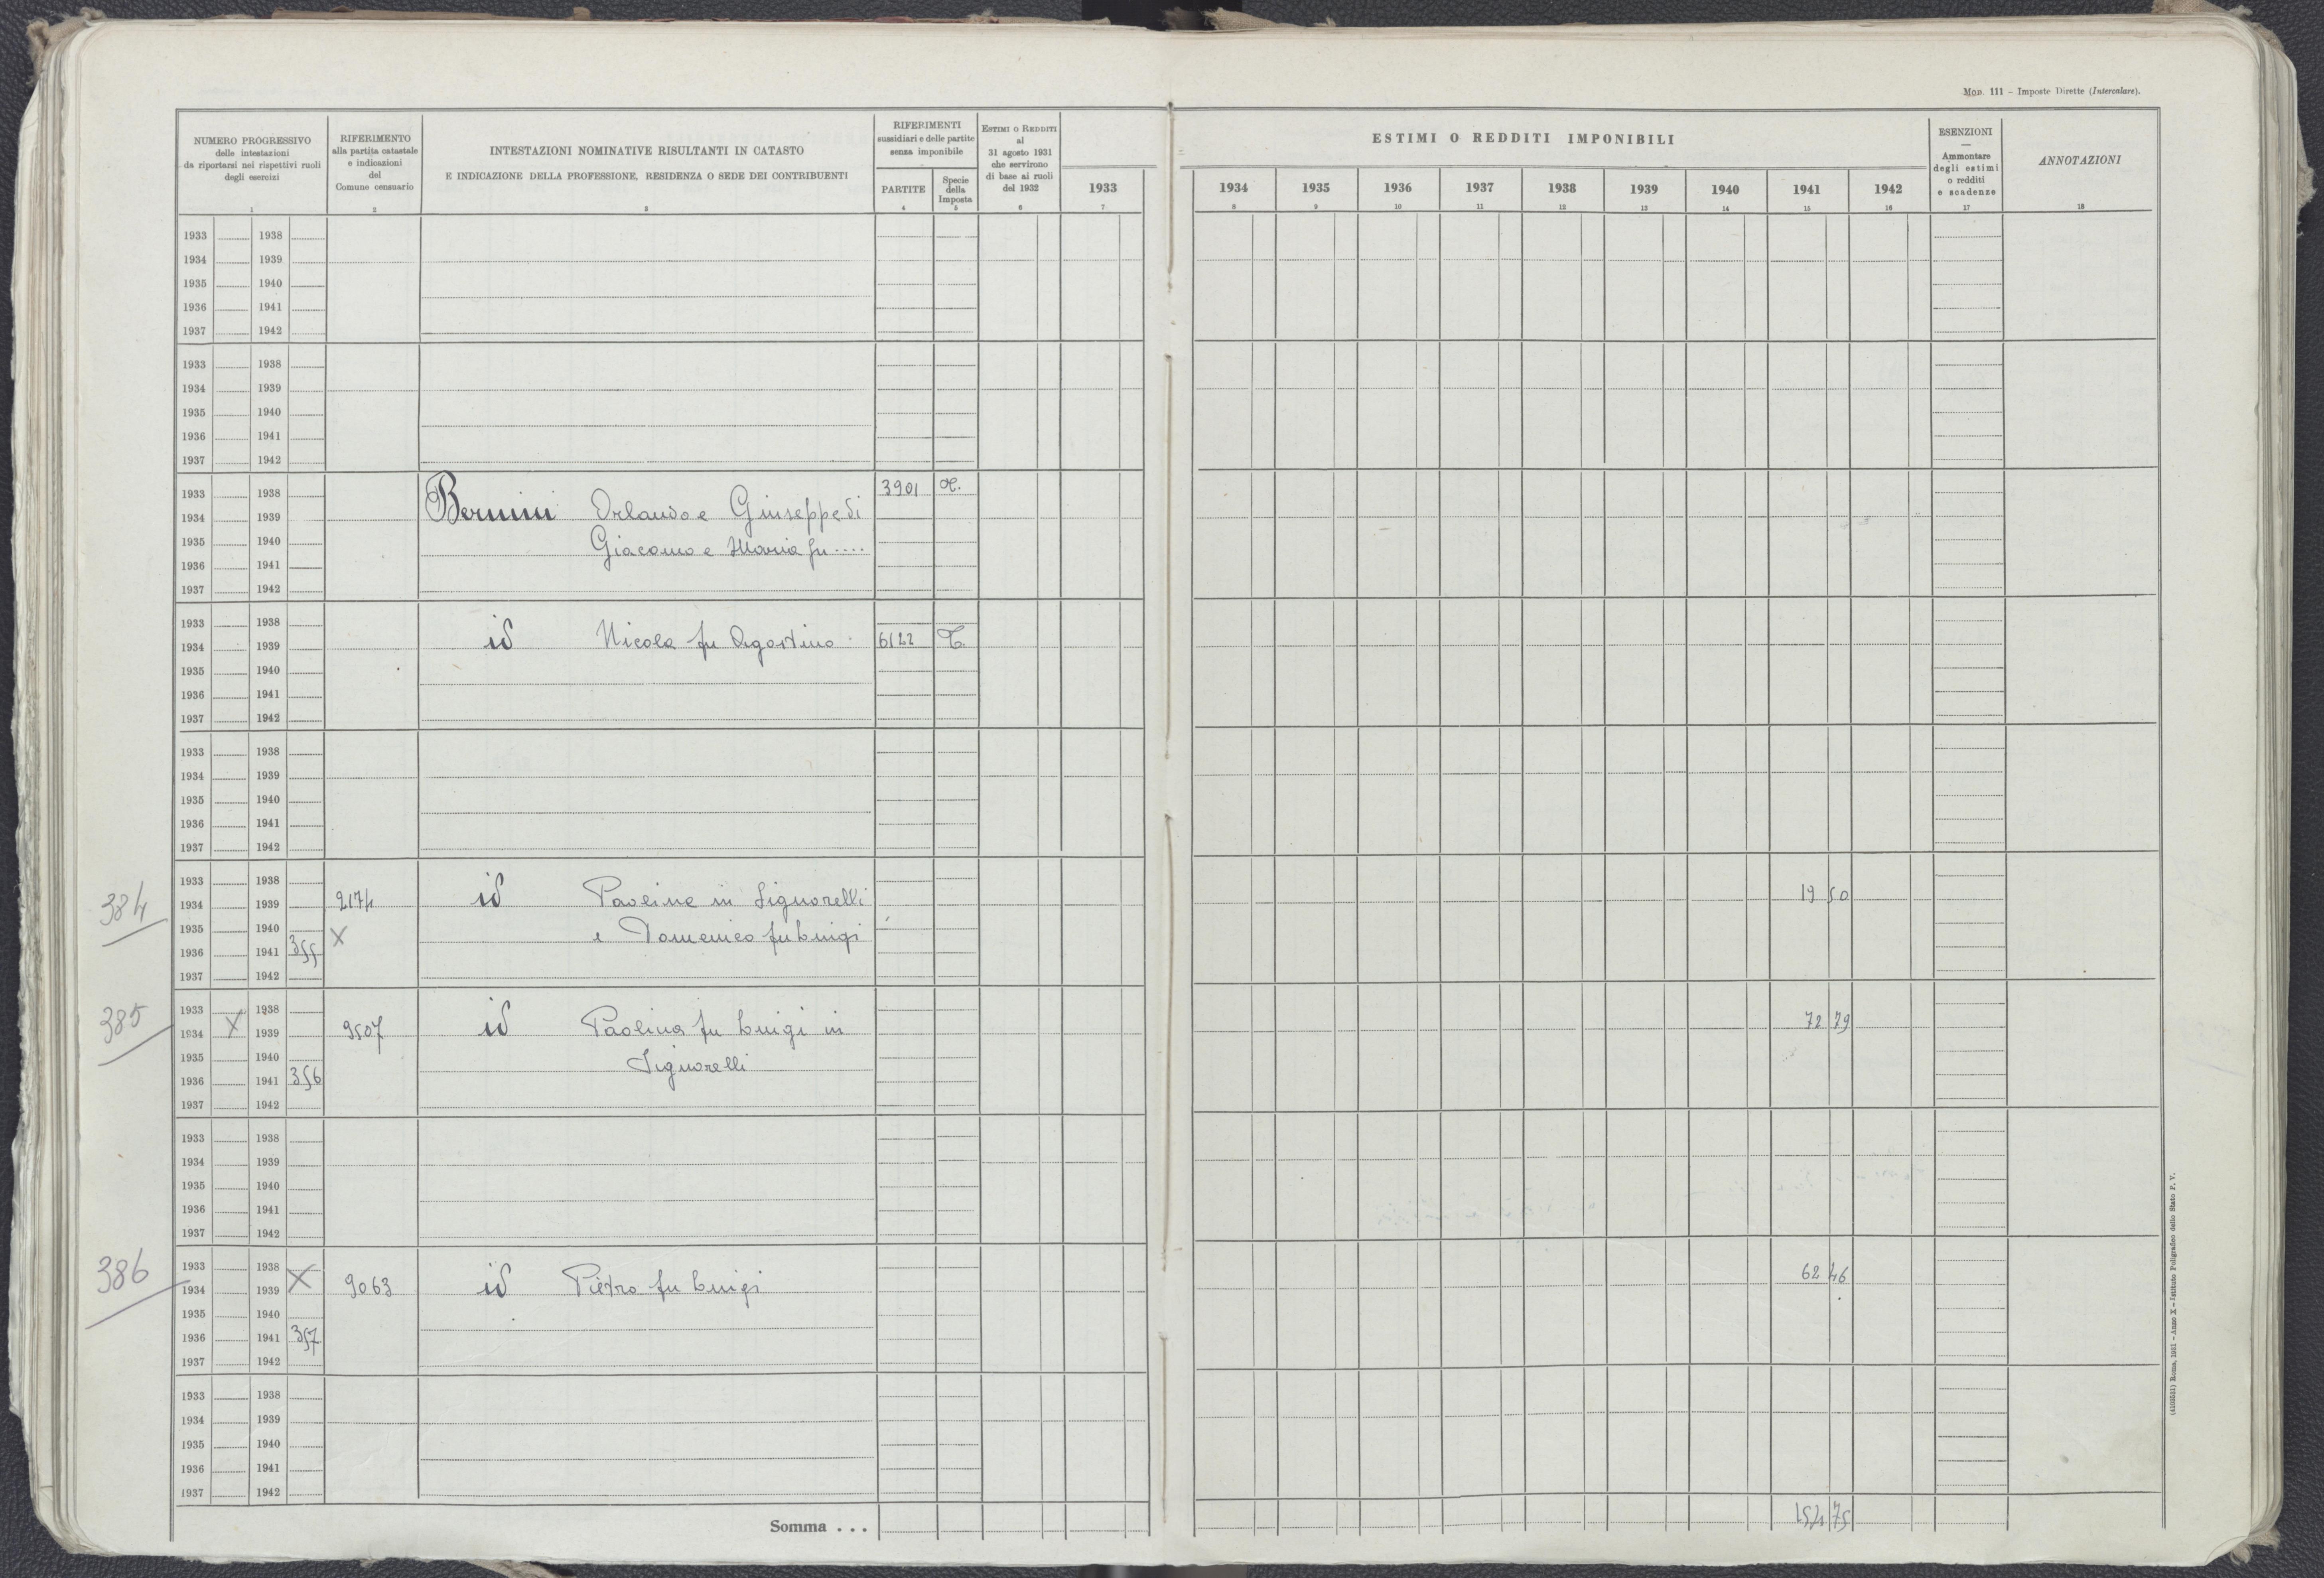 Mod. 111 – Imposte Dirette (Intercalare).
NUMERO PROGRESSIVO
delle intestazioni
da riportarsi nei rispettivi ruoli
degli esercizi
1
RIFERIMENTO
alla partita catastale
e indicazioni
del
Comune censuario
2
INTESTAZIONI NOMINATIVE RISULTANTI IN CATASTO
E INDICAZIONE DELLA PROFESSIONE, RESIDENZA O SEDE DEI CONTRIBUENTI
3
RIFERIMENTI
sussidiari e delle partite
senza imponibile
PARTITE
4
Specie
della
Imposta
5
ESTIMI O REDDITI
al
31 agosto 1931
che servirono
di base ai ruoli
del 1932
6
1933
7
ESTIMI O REDDITI IMPONIBILI
1934 1935 1936 1937 1938 1939 1940 1941 1942
8 9 10 11 12 13 14 15 16
ESENZIONI
—
Ammontare
degli estimi
o redditi
e scadenze
17
ANNOTAZIONI
18
1933 1938
1934 1939
1935 1940
1936 1941
1937 1942
1933 1938
1934 1939
1935 1940
1936 1941
1937 1942
1933 1938 3901
1934 1939 Bernini Orlando e Giuseppe di
1935 1940 Giacomo e Maria fu ....
1936 1941
1937 1942
1933 1938
1934 1939 id Nicola fu Agostino 6122 T.
1935 1940
1936 1941
1937 1942
1933 1938
1934 1939
1935 1940
1936 1941
1937 1942
1933 1938
384 1934 1939 2174 id Paolina in Signorelli 19 50
1935 1940 X e Domenico fu Luigi
1936 1941 355
1937 1942
1933 1938
385 1934 X 1939 9507 id Paolina fu Luigi in 72 79
1935 1940 Signorelli
1936 1941 356
1937 1942
1933 1938
1934 1939
1935 1940
1936 1941
1937 1942
1933 1938
386 1934 1939 X 9063 id Pietro fu Luigi 62 46
1935 1940
1936 1941 357
1937 1942
1933 1938
1934 1939
1935 1940
1936 1941
1937 1942
Somma . . . 154 75
(4103531) Roma, 1931 - Anno X - Istituto Poligrafico dello Stato P. V.